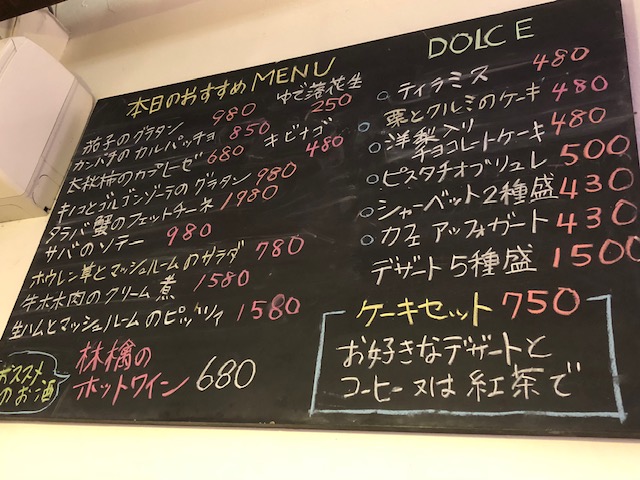 本日のおすすめ MENU
茄子のグラタン 980
カンパチのカルパッチョ 850
太秋柿のカプレーゼ 680
キノコとゴルゴンゾーラのグラタン 980
タラバ蟹のフェットチーネ 1980
サバのソテー 980
ホウレン草とマッシュルームのサラダ 780
牛ホホ肉のクリーム煮 1580
生ハムとマッシュルームのピッツィ 1580
ゆで落花生
250
キビナゴ
480
おススメ
のお酒
林檎の
ホットワイン 680
DOLCE
ティラミス 480
栗とクルミのケーキ 480
洋梨入り
チョコレートケーキ 480
ピスタチオブリュレ 500
シャーベット2種盛 430
カフェ アッフォガート 430
デザート5種盛 1500
ケーキセット 750
お好きなデザートと
コーヒー又は紅茶で